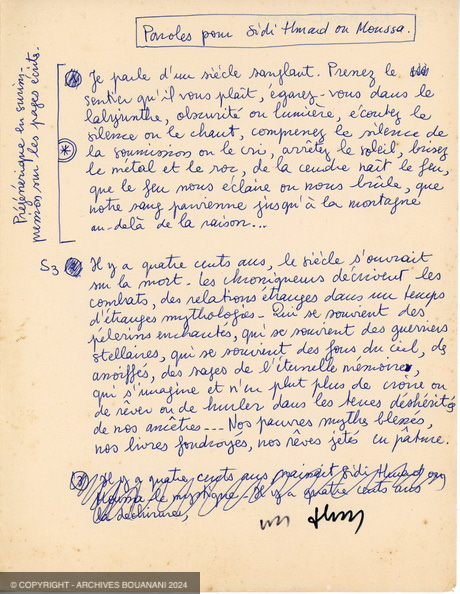 Paroles pour Sidi Hmad ou Moussa.
Prégénérique en surim-
pression sur les pages écrites.
Je parle d'un siècle sanglant. Prenez le
sentier qu'il vous plaît, égarez-vous dans le
labyrinthe, obscurité ou lumière, écoutez le
silence ou le chant, comprenez le silence de
la soumission ou le cri, arrêtez le soleil, brisez
le métal et le roc, de la cendre naît le feu,
que le feu nous éclaire ou nous brûle, que
notre sang parvienne jusqu'à la montagne
au-delà de la raison...
S3 Il y a quatre cents ans, le siècle s'ouvrait
sur la mort. Les chroniqueurs décrivent les
combats, des relations étranges dans un temps
d'étranges mythologies. Qui se souvient des
pèlerins enchantés, qui se souvient des guerriers
stellaires, qui se souvient des fous du ciel, des
assoiffés, des sages de l'éternelle mémoire,
qui s'imagine et n'en peut plus de croire ou
de rêver ou de hurler dans les terres déshéritées
de nos ancêtres... Nos pauvres mythes blessés,
nos livres foudroyés, nos rêves jetés en pâture.
(3) Il y a quatre cents ans naissait Sidi Hmad ou
Moussa le mystique. Il y a quatre cents ans
la déchirure,
© COPYRIGHT - ARCHIVES BOUANANI 2024